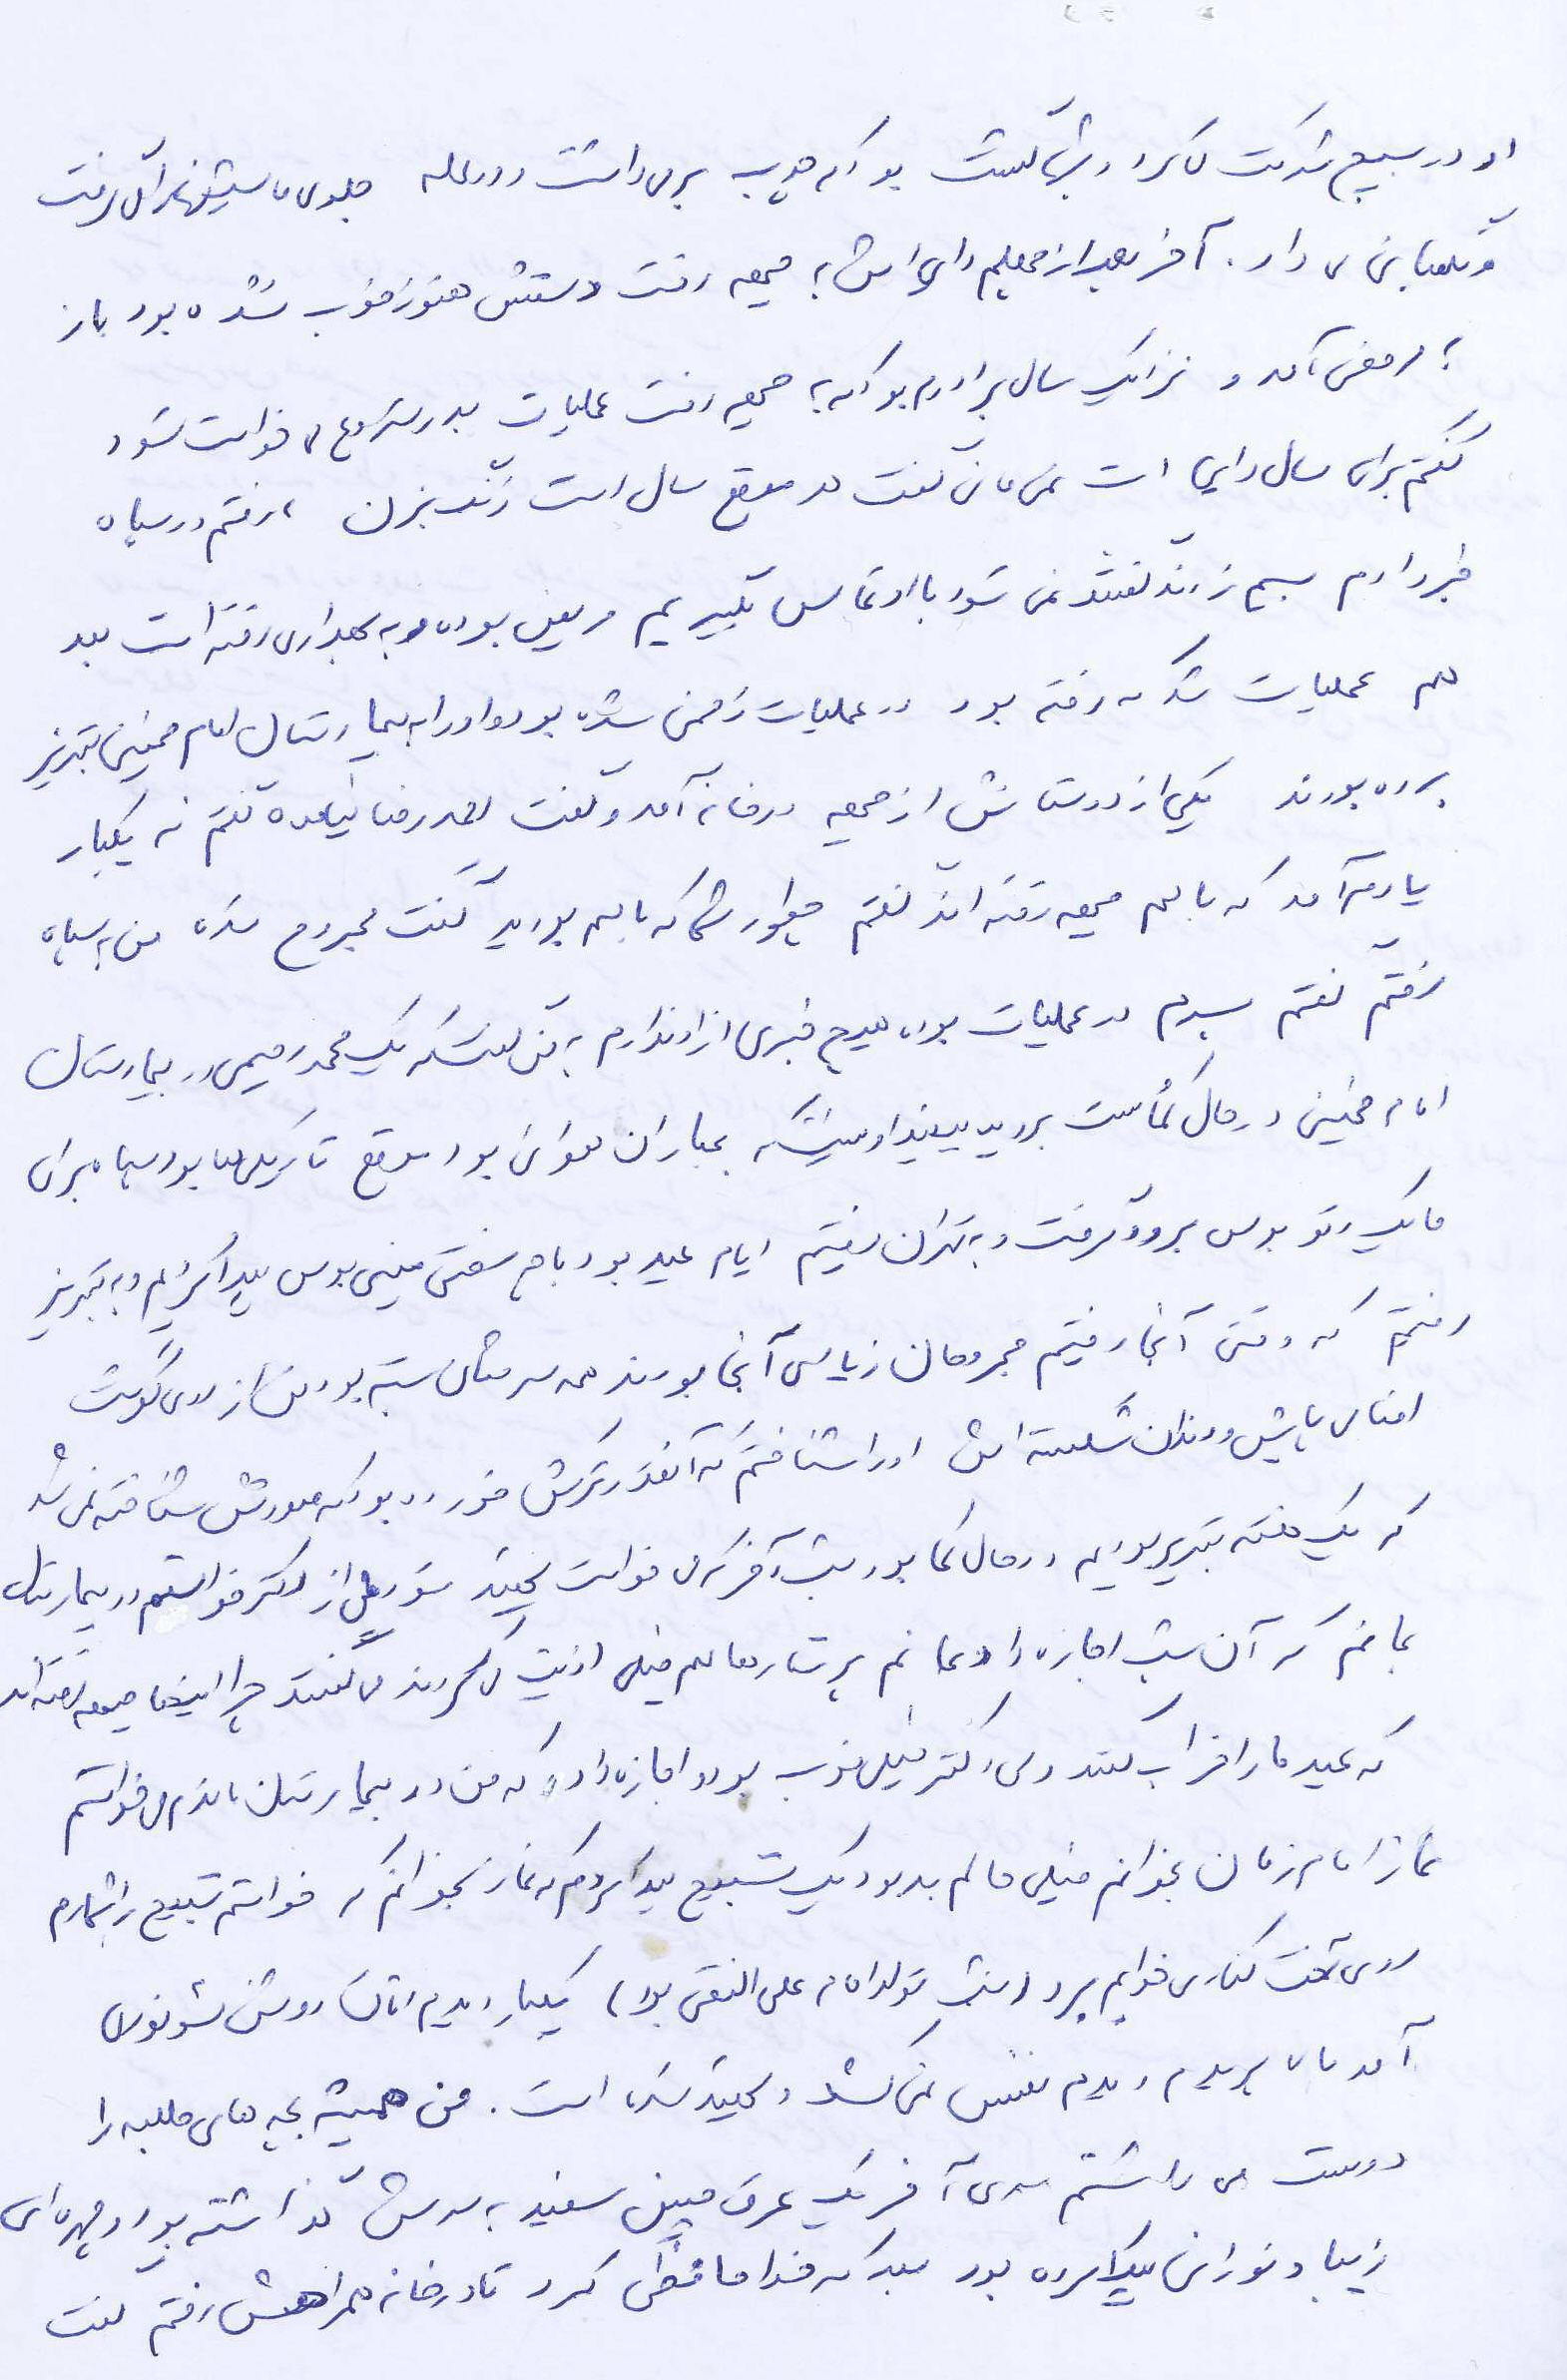 او در بسیج شرکت می‌کرد و شبها گشت بود که چوب برمی‌داشت و در محله جلوی ماشینها را می‌گرفت
و نگهبانی می داد. آخر بعد از چهلم دایی اش به جبهه رفت دستش هنوز خوب نشده بود باز
به مرخصی آمد و نزدیک سال برادرم بود که به جبهه رفت عملیات بدر شروع می خواست شود
گفتم برای سال دایی ات نمی مانی گفت در موقع سال است زنگ بزن ، رفتم در سپاه
خبر دادم بسیم زدند گفتند نمی شود با او تماس بگیریم مریض بوده و به بهداری رفته است بعد
هم عملیات شد که رفته بود در عملیات زخمی شده بود و او را به بیمارستان امام خمینی تبریز
برده بودند یکی از دوستانش از جبهه در خانه آمد و گفت احمدرضا نیامده گفتم نه یکبار
یادم آمد که با هم جبهه رفته اند گفتم چطور شما که با هم بودید گفت مجروح شده من به سپاه
رفتم گفتم پسرم در عملیات بوده هیچ خبری از او ندارم به من گفتند که یک محمد رحیمی در بیمارستان
امام خمینی در حال کماست بروید ببینید اوست که بمباران هوائی بود موقع تاریکی ها بود سپاه برای
ما یک اتوبوس بروود گرفت و به تهران رفتیم ایام عید بود با چه سختی مینی بوس پیدا کردیم و به تبریز
رفتیم که وقتی آنجا رفتیم مجروحان زیادی آنجا بودند همه سرشان بسته بود من از روی گوشت
اضافی پایش و دندان شکسته اش او را شناختم که آنقدر ترکش خورده بود که صورتش شناخته نمی شد
که یک هفته تبریز بودیم در حال کما بود شب آخر که می خواست شهید شود من از دکتر خواستم در بیمارستان
بمانم که آن شب اجازه داد بمانم پرستارها هم خیلی اذیت می کردند می گفتند چرا اینها جبهه رفته اند
که عید ما را خراب کنند ولی دکتر خیلی خوب بود و اجازه داد که من در بیمارستان ماندم می خواستم
نماز امام زمان بخوانم خیلی حالم بد بود یک تسبیح پیدا کردم که نماز بخوانم که خواستم تسبیح را بشمارم
روی تخت کناری خوابم برد (شب تولد امام علی النقی بود) یکبار دیدم اتاق روشن شد و نوری
آمد بالا پریدم دیدم نفس نمی کشد و شهید شده است. من همیشه بچه های طلبه را
دوست می داشتم روی آخر یک عرق چین سفید به سرش گذاشته بود و چهره ای
زیبا و نورانی پیدا کرده بود بعد که خداحافظی کرد تا در خانه همراهش رفتم گفت